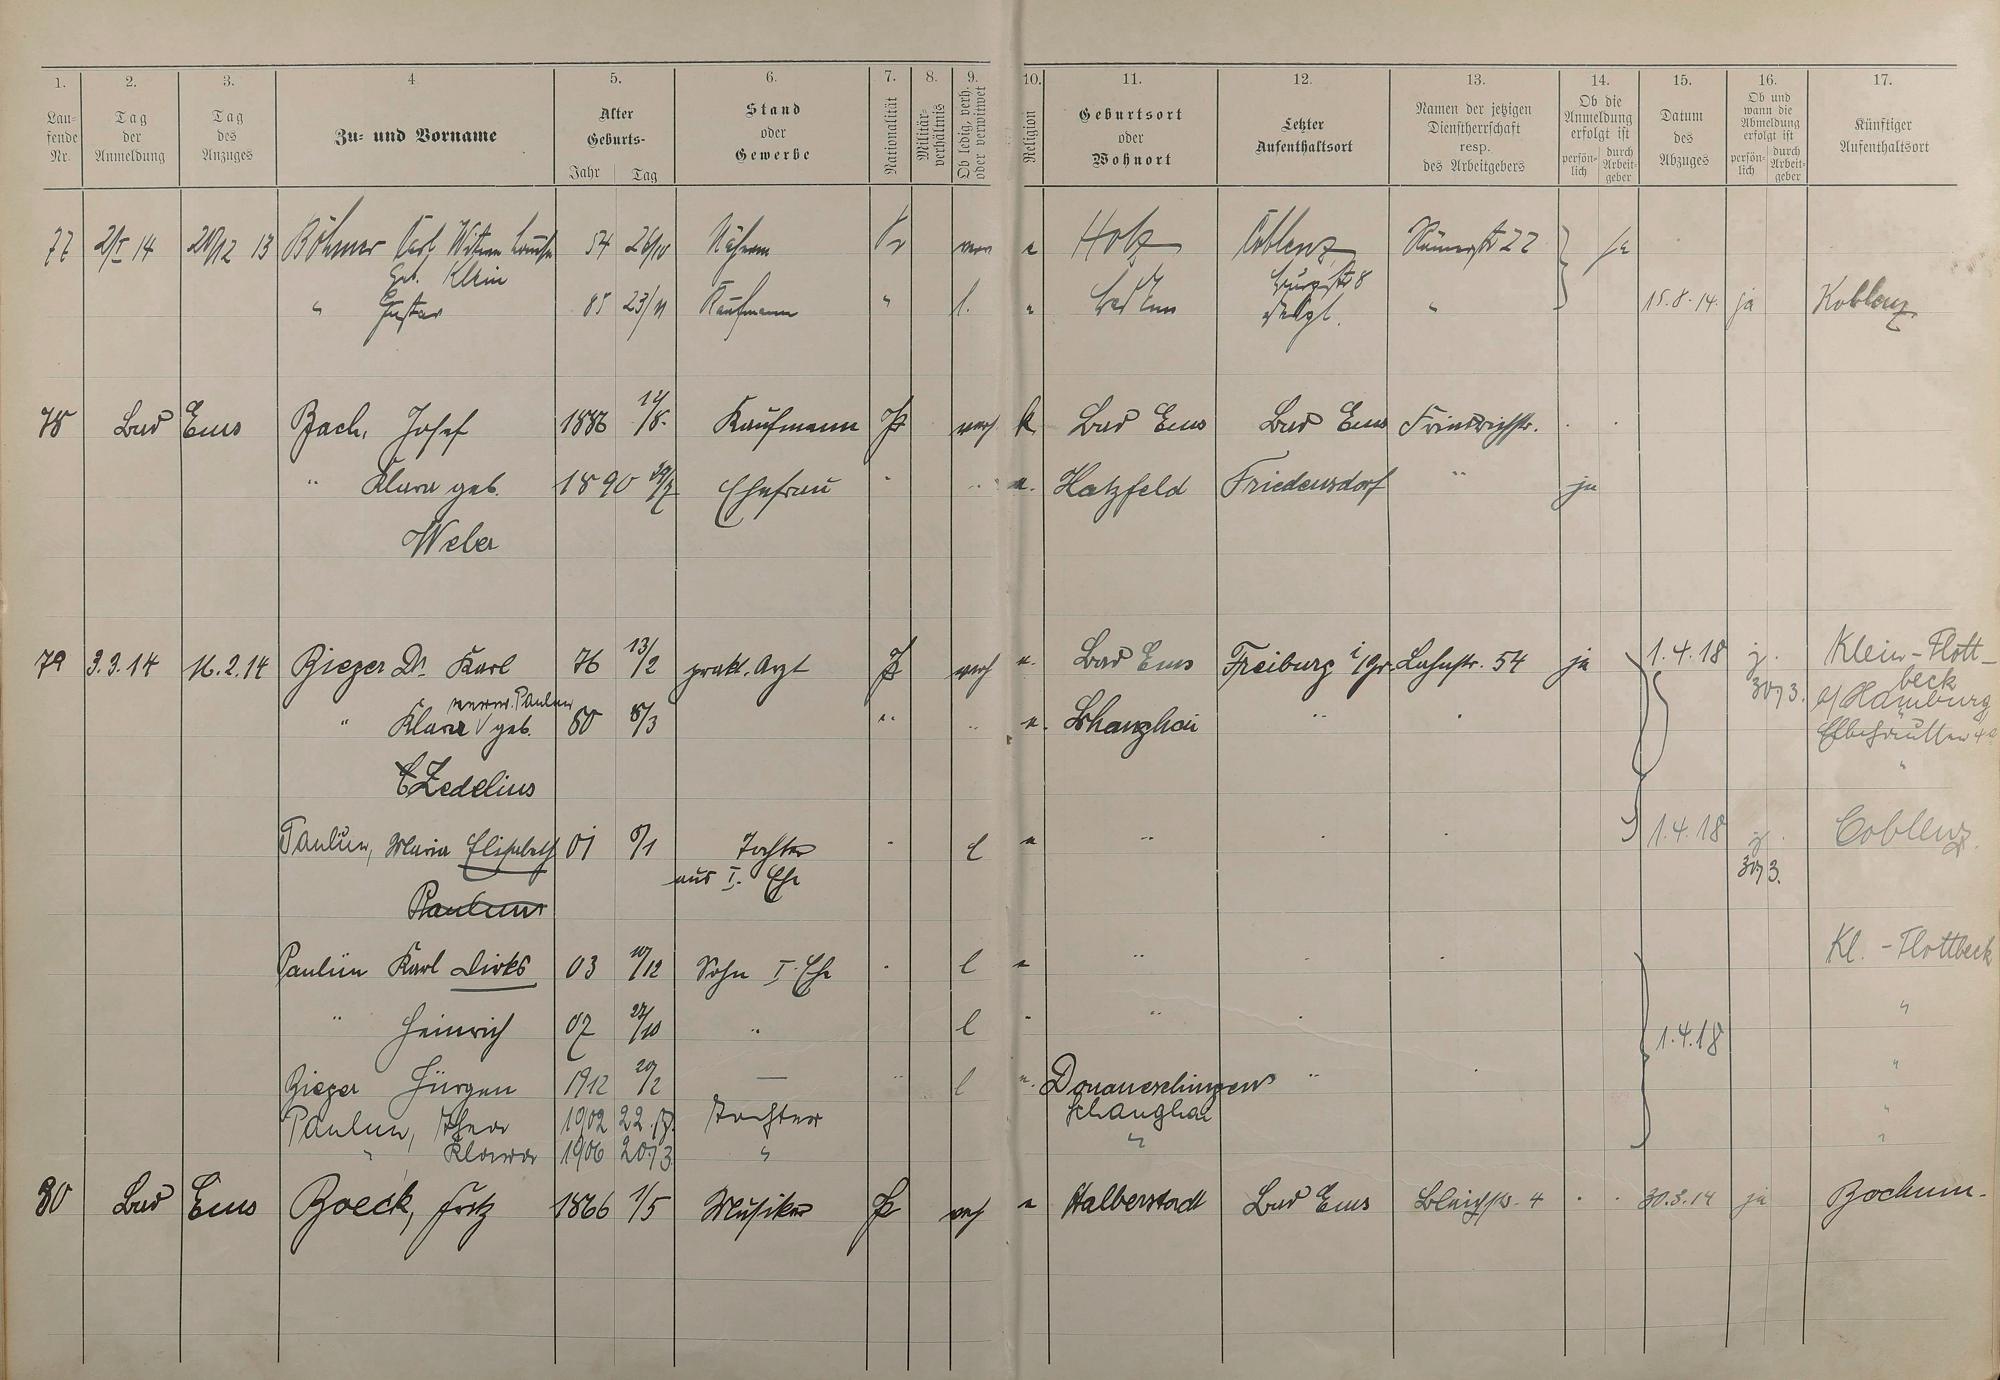 1. 2. 3. 4 5. 6. 7. 8. 9. 10. 11. 12. 13. 14. 15. 16. 17.
Lau-
fende
Nr.
Tag
der
Anmeldung
Tag
des
Anzuges
Zu- und Vorname
Alter
Geburts-
Jahr Tag
Stand
oder
Gewerbe
Nationalität
Militär-
verhältnis
Ob ledig, verh.
oder verwitwet
Religion
Geburtsort
oder
Wohnort
Letzter
Aufenthaltsort
Namen der jetzigen
Dienstherrschaft
resp.
des Arbeitgebers
Ob die
Anmeldung
erfolgt ist
persön-
lich
durch
Arbeit-
geber
Datum
des
Abzuges
Ob und
wann die
Abmeldung
erfolgt ist
persön-
lich
durch
Arbeit-
geber
Künftiger
Aufenthaltsort
77 2/I 14 20/12 13 Böhmer Carl Witwe 54 26/10 Pr Coblenz 22 ja
geb. Klein
" Gustav 85 23/11 Kaufmann " l. " Bad Ems " 15.8.14. ja Koblenz
78 Bad Ems Bach, Josef 1886 Kaufmann P verh k Bad Ems Bad Ems Friedrichstr.
" Klara geb. 1890 Ehefrau " " e. Hatzfeld Friedensdorf " ja
Weber
79 3.3.14 16.2.14 Rieger Dr Karl 76 13/2 prakt. Arzt P verh e. Bad Ems Freiburg i/Br. Lahnstr. 54 ja 1.4.18 j. Klein-Flott-
30/3. beck
b/Hamburg
verw. Paulun
" Klara geb. 80 8/3 " " e. Shanghai " "
Zedelius
Paulun, Maria Elisabeth 01 Tochter " l e " 1.4.18 j. Coblenz.
aus I. Ehe 30/3.
Paulun
Paulün Karl Dirks 03 10/12 Sohn I. Ehe " l e " Kl. - Flottbeck
" Heinrich 07 27/10 " l " " "
1.4.18
Rieger Jürgen 1912 20/2 — " l e. Donaueschingen " "
Paulun, Thea 1902 Tochter Schanghai "
" Klara 1906 20/3 " " "
80 Bad Ems Boeck, Fritz 1866 1/5 Musiker P verh e Halberstadt Bad Ems Bleichstr. 4 30.3.14 ja Bochum.